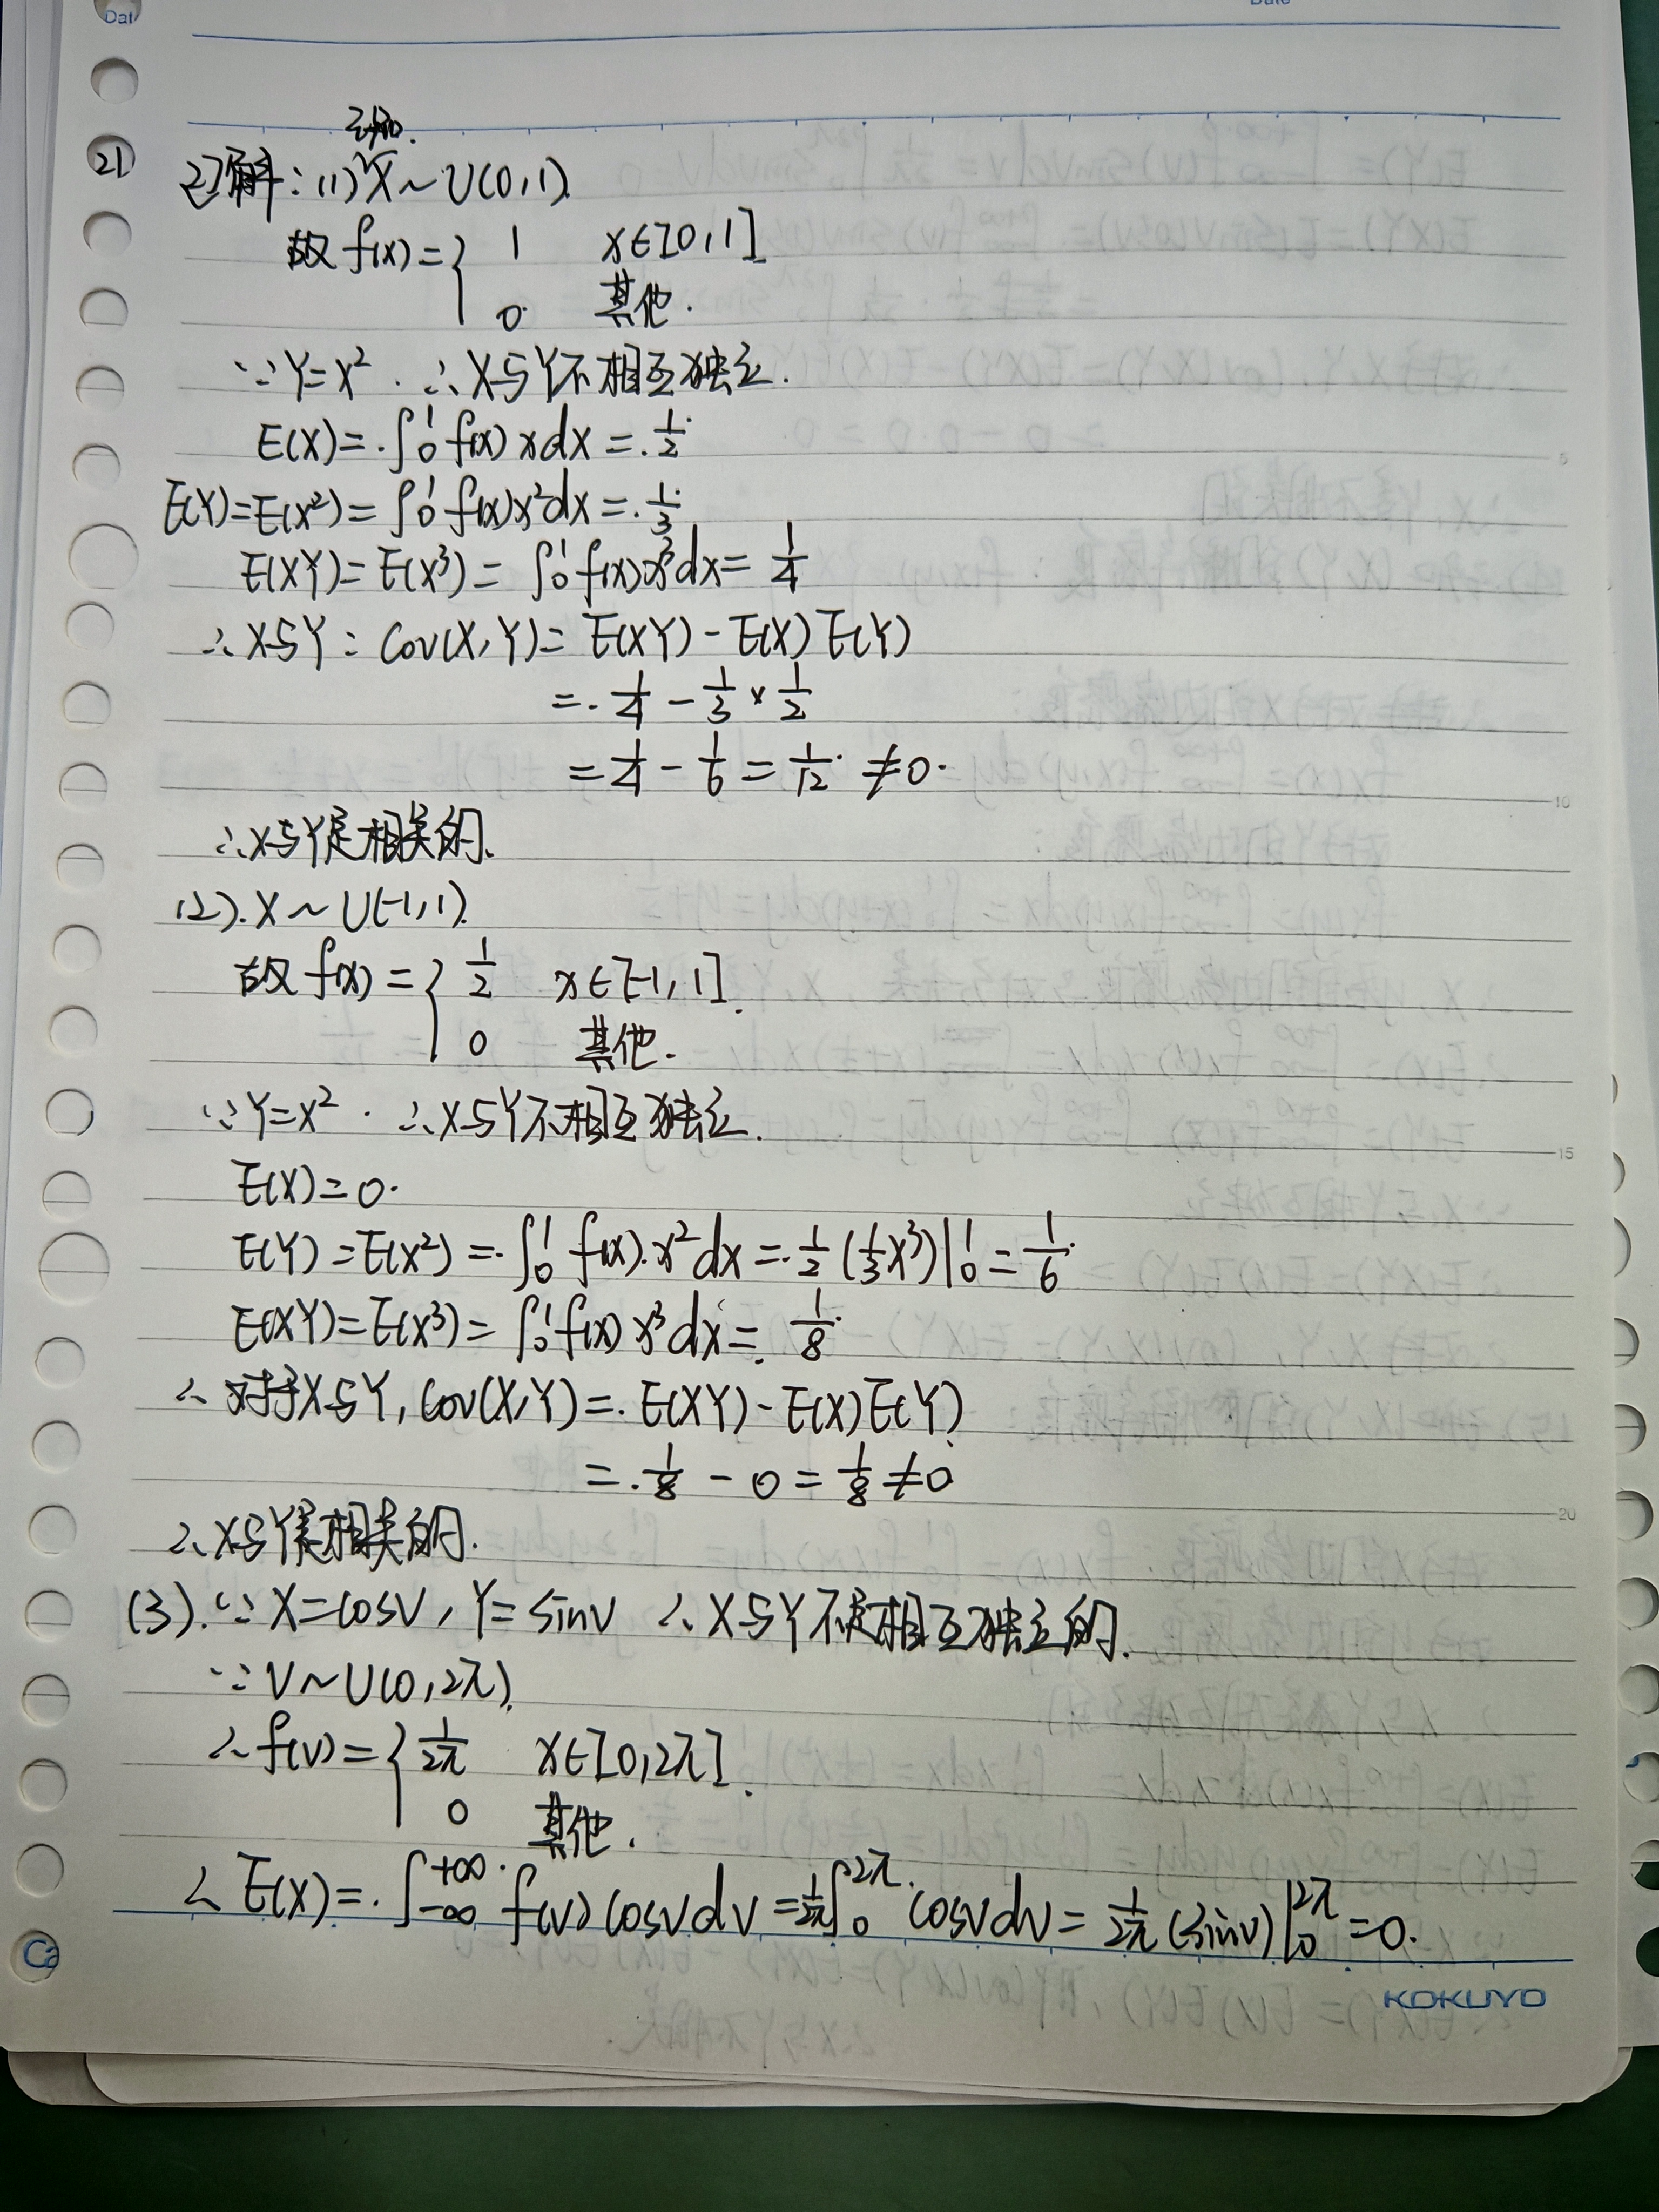 Dat
Date
21
已知.
21解:(1) X~U(0,1).
故 f(x)={ 1 x∈[0,1]
0 其他.
∵Y=X². ∴X与Y不相互独立.
E(X)=∫₀¹ f(x) x dx = 1/2
E(Y)=E(X²)=∫₀¹ f(x)x²dx = 1/3
E(XY)=E(X³)=∫₀¹ f(x)x³dx = 1/4
∴X与Y: Cov(X,Y)=E(XY)-E(X)E(Y)
= 1/4 - 1/3 × 1/2
= 1/4 - 1/6 = 1/12 ≠0.
∴X与Y是相关的.
(2). X~U(-1,1).
故 f(x)={ 1/2 x∈[-1,1].
0 其他.
∵Y=X². ∴X与Y不相互独立.
E(X)=0.
E(Y)=E(X²)=∫₀¹ f(x).x²dx = 1/2 (1/3 x³)|₀¹ = 1/6
E(XY)=E(X³)=∫₀¹ f(x) x³dx = 1/8
∴对于X与Y, Cov(X,Y)=E(XY)-E(X)E(Y)
= 1/8 - 0 = 1/8 ≠0
∴X与Y是相关的.
(3). ∵X=cosV, Y=sinV ∴X与Y不是相互独立的.
∵V~U(0,2π).
∴f(v)={ 1/2π x∈[0,2π].
0 其他.
∴E(X)=∫₋∞⁺∞ f(v) cosv dv = 1/2π ∫₀²π cosv dv = 1/2π (sinv)|₀²π = 0.
KOKUYO
5
10
15
20